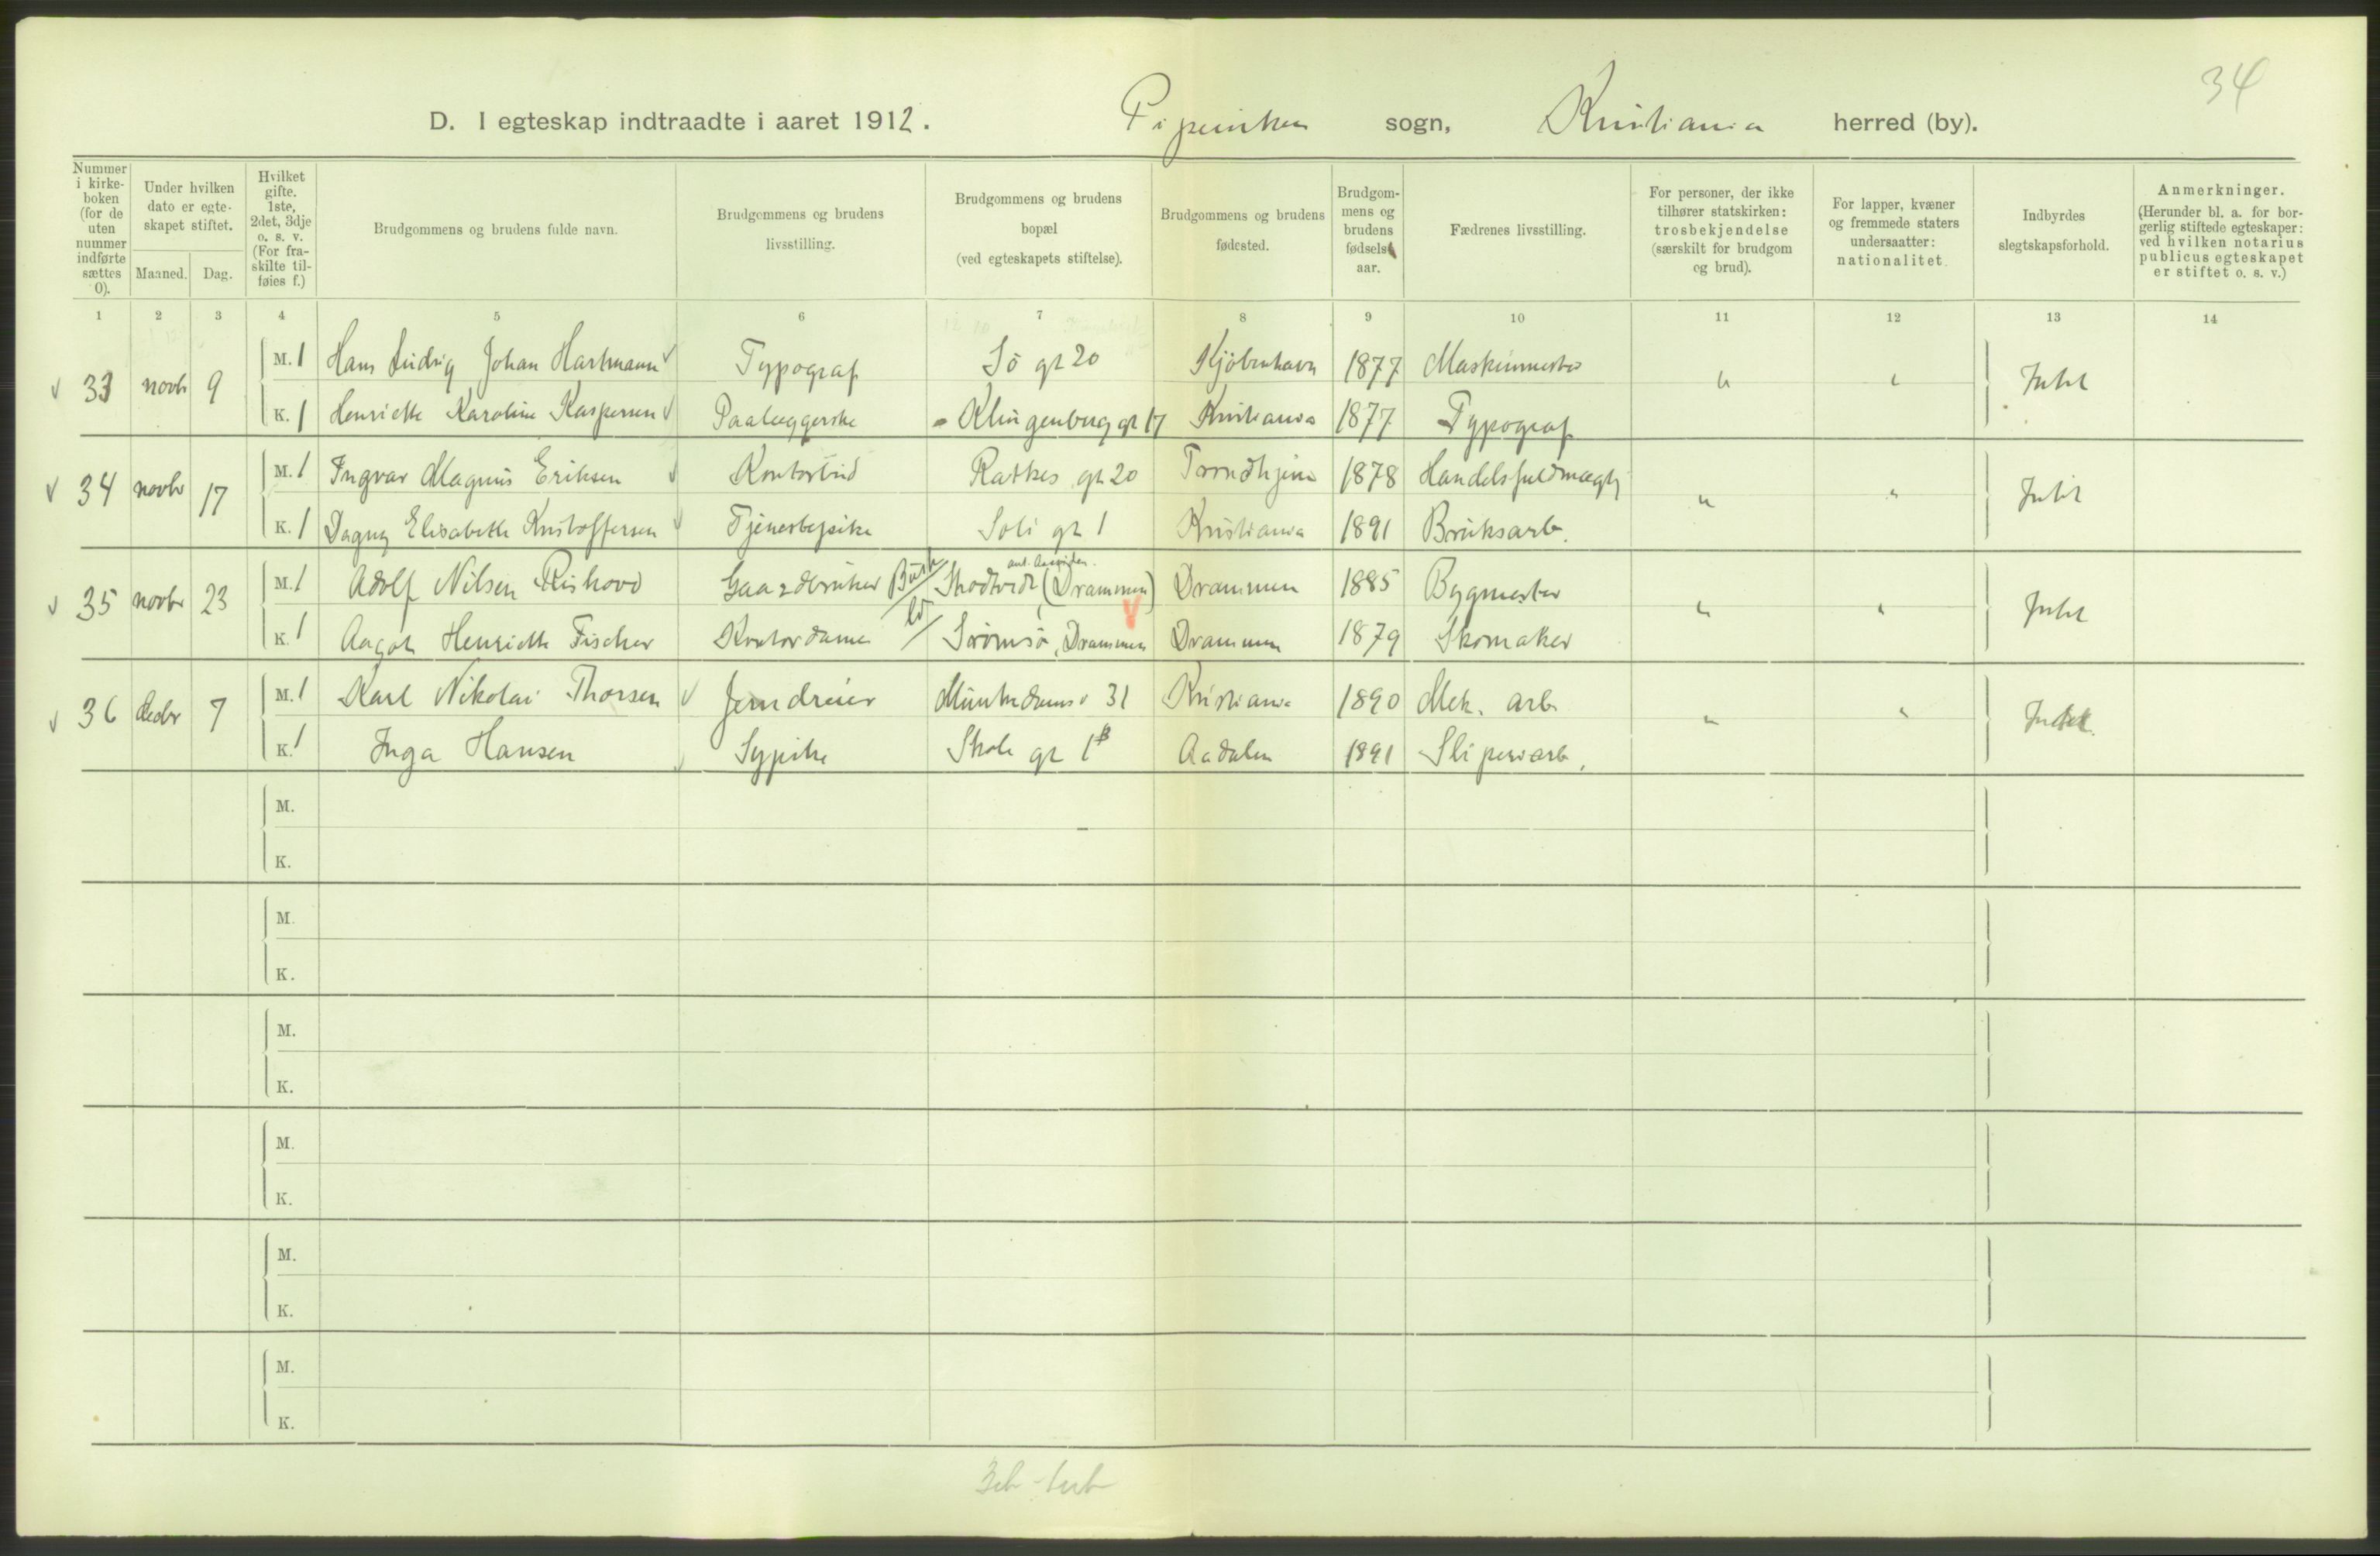 34
D. I egteskap indtraadte i aaret 1912. Piperviken sogn, Kristiania herred (by).
Nummer i kirke-boken (for de uten nummer indførte sættes 0).
Under hvilken dato er egte-skapet stiftet.
Maaned. Dag.
Hvilket gifte. 1ste, 2det, 3dje o. s. v. (For fra-skilte til-føies f.)
Brudgommens og brudens fulde navn.
Brudgommens og brudens livsstilling.
Brudgommens og brudens bopæl (ved egteskapets stiftelse).
Brudgommens og brudens fødested.
Brudgom-mens og brudens fødsels-aar.
Fædrenes livsstilling.
For personer, der ikke tilhører statskirken: trosbekjendelse (særskilt for brudgom og brud).
For lapper, kvæner og fremmede staters undersaatter: nationalitet.
Indbyrdes slegtskapsforhold.
Anmerkninger. (Herunder bl. a. for bor-gerlig stiftede egteskaper: ved hvilken notarius publicus egteskapet er stiftet o. s. v.)
1 2 3 4 5 6 7 8 9 10 11 12 13 14
33 novb 9 M. 1 Hans Ludvig Johan Hartmann Typograf Sö gt 20 Kjöbenhavn 1877 Maskinmester " " Intet
K. 1 Henriette Karoline Kaspersen Paalæggerske Klingenberg gt 17 Kristiania 1877 Typograf
34 novbr 17 M. 1 Ingvar Magnus Eriksen Kontorbud Ratkes gt 20 Trondhjem 1878 Handelsfuldmægtig " " Intet
K. 1 Dagny Elisabeth Kristoffersen Tjenestepike Soli gt 1 Kristiania 1891 Bruksarb.
35 novbr 23 M. 1 Adolf Nilsen Rishovd Gaardbruker Busk Skodtvedt (Drammen) Drammen 1885 Bygmester " " Intet
K. 1 Aagot Henriette Fischer Kontordame Strømsö, Drammen Drammen 1879 Skomaker
36 decbr 7 M. 1 Karl Nikolai Thorsen Jerndreier Munkedamsv 31 Kristiania 1890 Mek. arb " " Intet
K. 1 Inga Hansen Sypike Skole gt 1B Aadalen 1891 Sliperiarb.
M.
K.
M.
K.
M.
K.
M.
K.
M.
K.
M.
K.